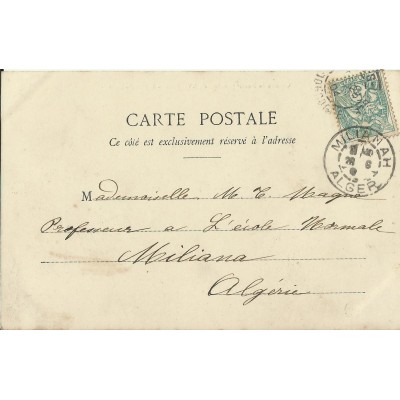 CARTE POSTALE
Ce côté est exclusivement réservé à l'adresse
MILIANAH
ALGER
Mademoiselle M. T. Magne
Professeur a L'école Normale
Miliana
Algérie